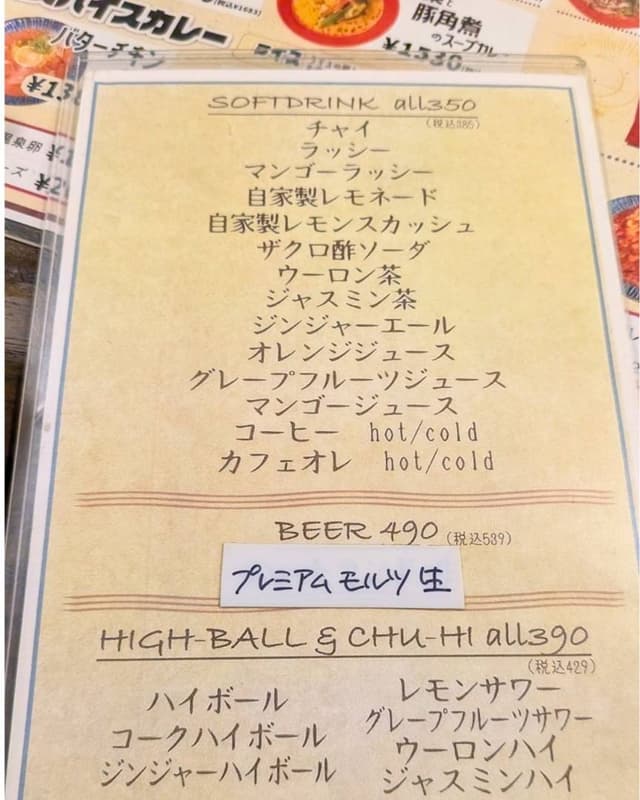 イスカレー
(税込¥1683)
バターチキン
ライス
豚角煮
のスープカレー
¥1530
温泉卵
SOFTDRINK all350
(税込385)
チャイ
ラッシー
マンゴーラッシー
自家製レモネード
自家製レモンスカッシュ
ザクロ酢ソーダ
ウーロン茶
ジャスミン茶
ジンジャーエール
オレンジジュース
グレープフルーツジュース
マンゴージュース
コーヒー hot/cold
カフェオレ hot/cold
BEER 490 (税込539)
プレミアムモルツ 生
HIGH-BALL & CHU-HI all390
(税込429)
ハイボール
コークハイボール
ジンジャーハイボール
レモンサワー
グレープフルーツサワー
ウーロンハイ
ジャスミンハイ